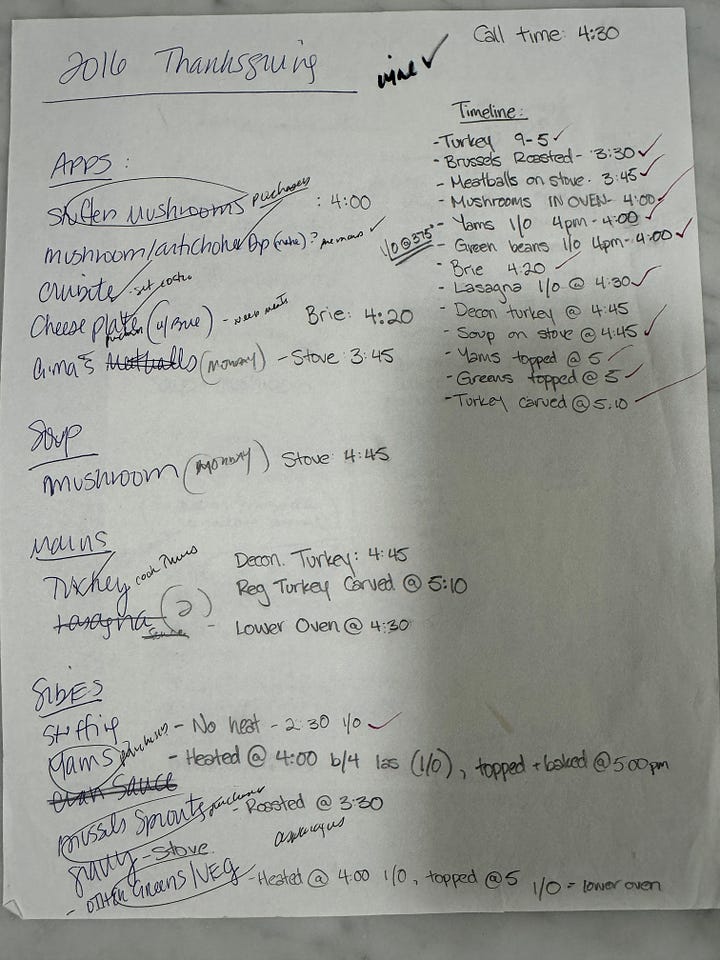 Call time: 4:30
2016 Thanksgiving
wine ✓
APPS:
Stuffed Mushrooms purchases : 4:00
Mushroom/artichoke Dip (make)? ✓
Crudite
Cheese plate (w/ Brie) - need meats Brie: 4:20
Gma's Meatballs (Monday) - Stove: 3:45
Soup
Mushroom (Monday) Stove: 4:45
Mains
Turkey cook Thurs Decon. Turkey: 4:45
Reg Turkey Carved @ 5:10
Lasagna (2) - Lower Oven @ 4:30
Sauce
SIDES
Stuffing - No heat - 2:30 l/o ✓
Yams purchases - Heated @ 4:00 b/4 las (l/o), topped + baked @ 5:00pm
Cran Sauce
Brussels Sprouts purchases - Roasted @ 3:30
asparagus
gravy - Stove
- Other Greens/VEG - Heated @ 4:00 l/o, topped @ 5 l/o = lower oven
Timeline:
- Turkey 9-5 ✓
- Brussels Roasted - 3:30 ✓
- Meatballs on stove - 3:45 ✓
- Mushrooms IN OVEN - 4:00 ✓
- Yams l/o 4pm - 4:00 ✓
l/o @ 375°
- Green beans l/o 4pm - 4:00 ✓
- Brie 4:20 ✓
- Lasagna l/o @ 4:30 ✓
- Decon turkey @ 4:45
- Soup on stove @ 4:45 ✓
- Yams topped @ 5 ✓
- Greens topped @ 5 ✓
- Turkey carved @ 5:10 ✓